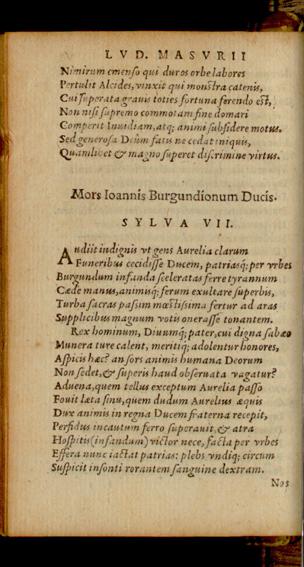 LVD. MASVRII
Nimirum emenso qui duros orbe labores
Pertulit Alcides, vinxit qui monstra catenis,
Cui superata grauis toties fortuna ferendo est,
Non nisi supremo commotam fine domari
Comperit Inuidiam, atq; animi subsidere motus.
Sed generosa Deûm fatis ne cedat iniquis,
Quamlibet & magno superet discrimine virtus.
Mors Ioannis Burgundionum Ducis.
SYLVA VII.
Audiit indignis vt gens Aurelia clarum
Funeribus cecidisse Ducem, patriasq; per vrbes
Burgundum infanda sceleratas ferre tyrannum
Cæde manus, animisq; ferum exultare superbis,
Turba sacras passim mœstissima fertur ad aras
Supplicibus magnum votis onerasse tonantem.
Rex hominum, Diuumq; pater, cui digna sabæo
Munera ture calent, meritiq; adolentur honores,
Aspicis hæc? an sors animis humana Deorum
Non sedet, & superis haud obseruata vagatur?
Aduena, quem tellus exceptum Aurelia passo
Fouit læta sinu, quem dudum Aurelius æquis
Dux animis in regna Ducem fraterna recepit,
Perfidus incautum ferro superauit, & atra
Hospitis (infandum) victor nece, facta per vrbes
Effera nunc iactat patrias: plebs vndiq; circum
Suspicit insonti rorantem sanguine dextram.
Nos